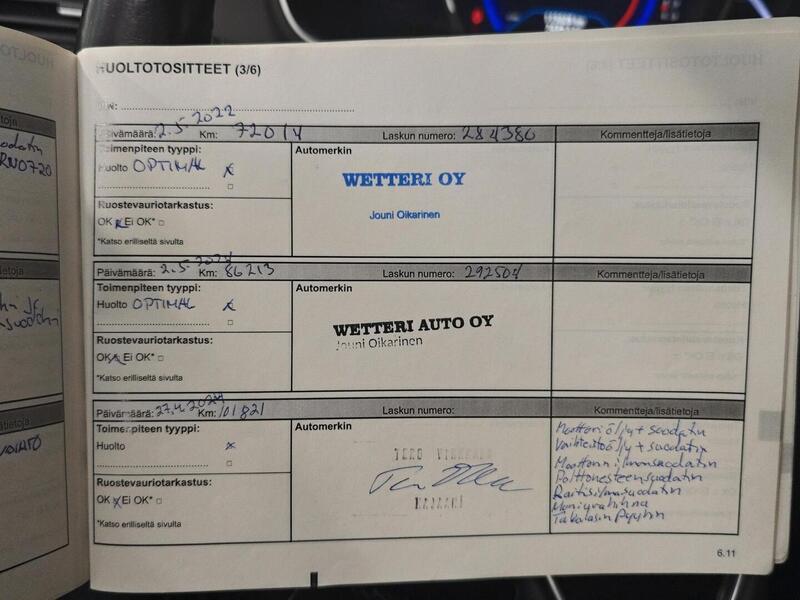 HUOLTOTOSITTEET (3/6)
Päivämäärä: 2.5-2022 Km: 72014 Laskun numero: 284380 Kommentteja/lisätietoja
Toimenpiteen tyyppi: Automerkin
Huolto OPTIMAL x
WETTERI OY
Jouni Oikarinen
Ruostevauriotarkastus:
OK x Ei OK* □
*Katso erilliseltä sivulta
Päivämäärä: 2.5- Km: 86213 Laskun numero: 292504 Kommentteja/lisätietoja
Toimenpiteen tyyppi: Automerkin
Huolto OPTIMAL x
WETTERI AUTO OY
Jouni Oikarinen
Ruostevauriotarkastus:
OK x Ei OK* □
*Katso erilliseltä sivulta
Päivämäärä: 27.4.2024 Km: 101821 Laskun numero: Kommentteja/lisätietoja
Toimenpiteen tyyppi: Automerkin
Huolto x
TERO
KAJAANI
Ruostevauriotarkastus:
OK x Ei OK* □
*Katso erilliseltä sivulta
Moottoriöljy + suodatin
Vaihteistoöljy + suodatin
Moottorin ilmansuodatin
Polttonesteensuodatin
Raitisilmasuodatin
Moniurahihna
Takalasin pyyhin
6.11